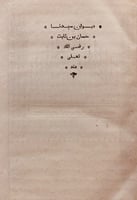 ديوان سيدنا
حسان بن ثابت
رضي الله
تعالى
عنه